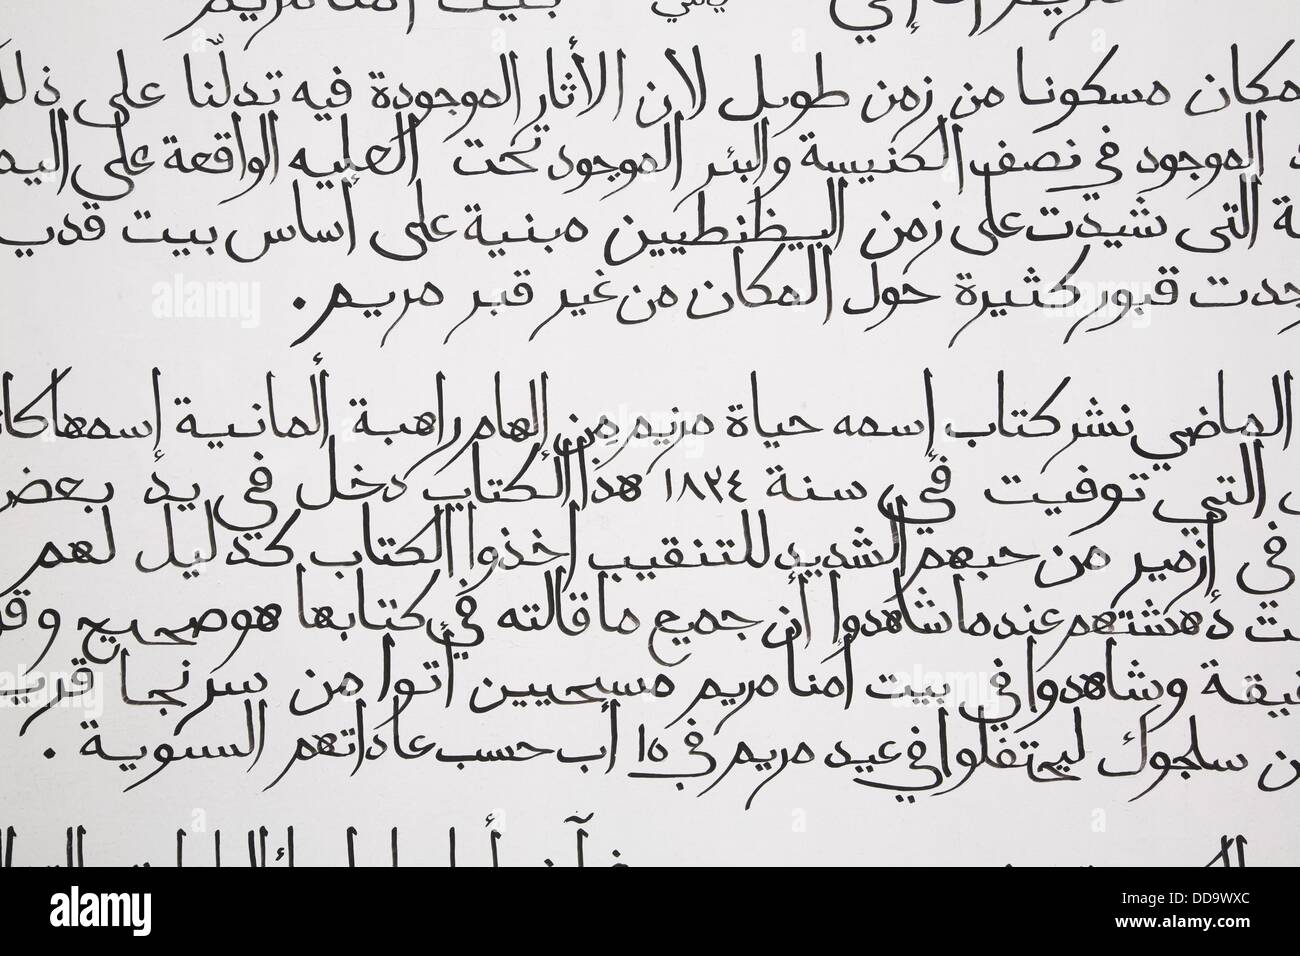 بيت أمنا مريم
مكان مسكونا من زمن طويل لان الأثار الموجودة فيه تدلّنا على ذلك
الموجود في نصف الكنيسة والبئر الموجود تحت العليه الواقعة على اليم
ة التى شيّدت على زمن البيظنطيين مبنية على إساس بيت قديـ
جدت قبور كثيرة حول المكان من غير قبر مريم .
الماضي نشر كتاب إسمه حياة مريم مِن إلهام راهبة ألمانية إسمها كاتـ
التي توفيت في سنة ١٨٢٤ هذا الكتاب دخل في يد بعض
في أزمير من حبهم الشديد للتنقيب اخذوا الكتاب كدليل لهم
ت دهشتهم عندما شاهدوا أن جميع ما قالته في كتابها هو صحيح وقـ
قيقة وشاهدوا في بيت امنا مريم مسيحيين أتوا من سرنجا قرب
ن سلجوك ليحتفلوا في عيد مريم في ١٥ أب حسب عاداتهم السنوية .
alamy
alamy
alamy
alamy
Image ID: DD9WXC
www.alamy.com